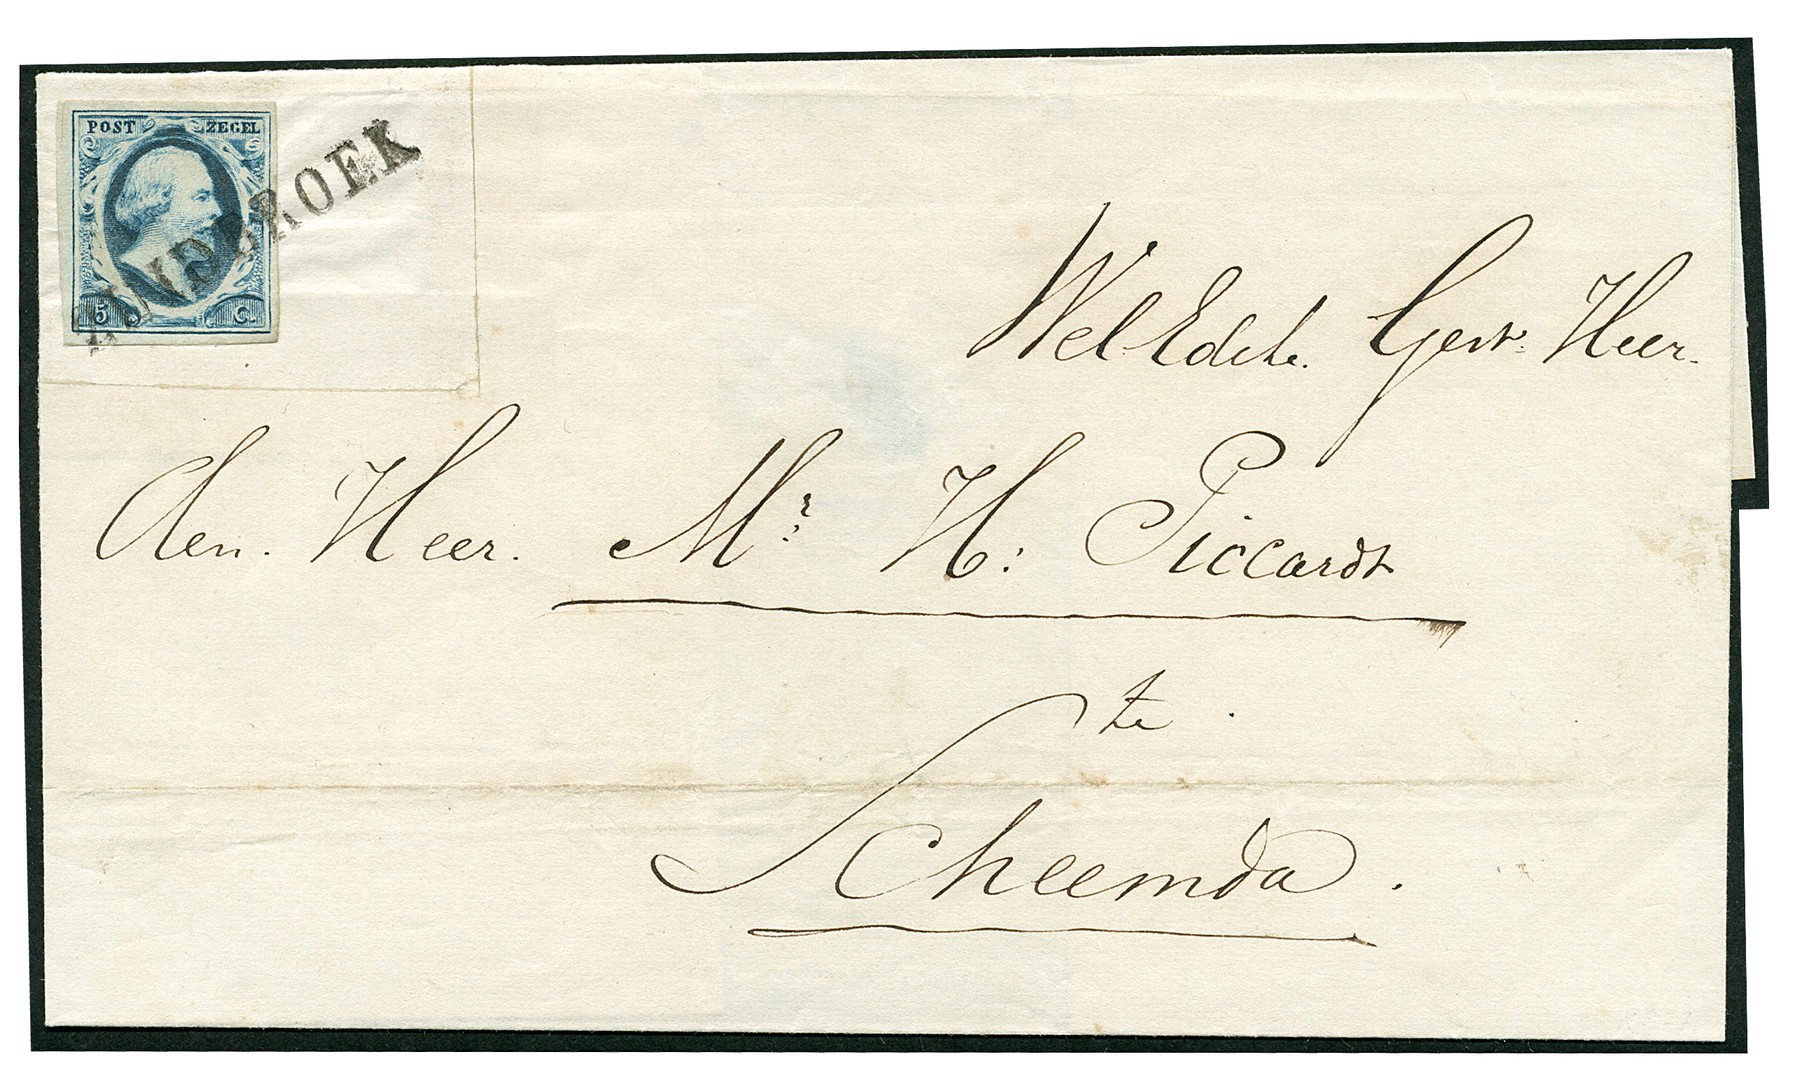 POST ZEGEL
5 C.
ZUIDBROEK
Wel Edele. Gestr. Heer.
Den. Heer. Mr. H: Piccardt
te.
Scheemda.